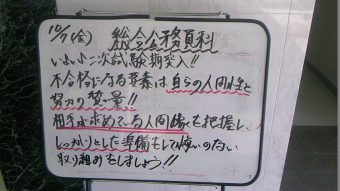 10/7(金) 総合公務員科
いよいよ二次試験期突入!!
不合格になる要素は自らの人間性と
努力の質・量!!
相手が求めている人間像を把握し、
しっかりとした準備をして悔いのない
取り組みをしましょう!!